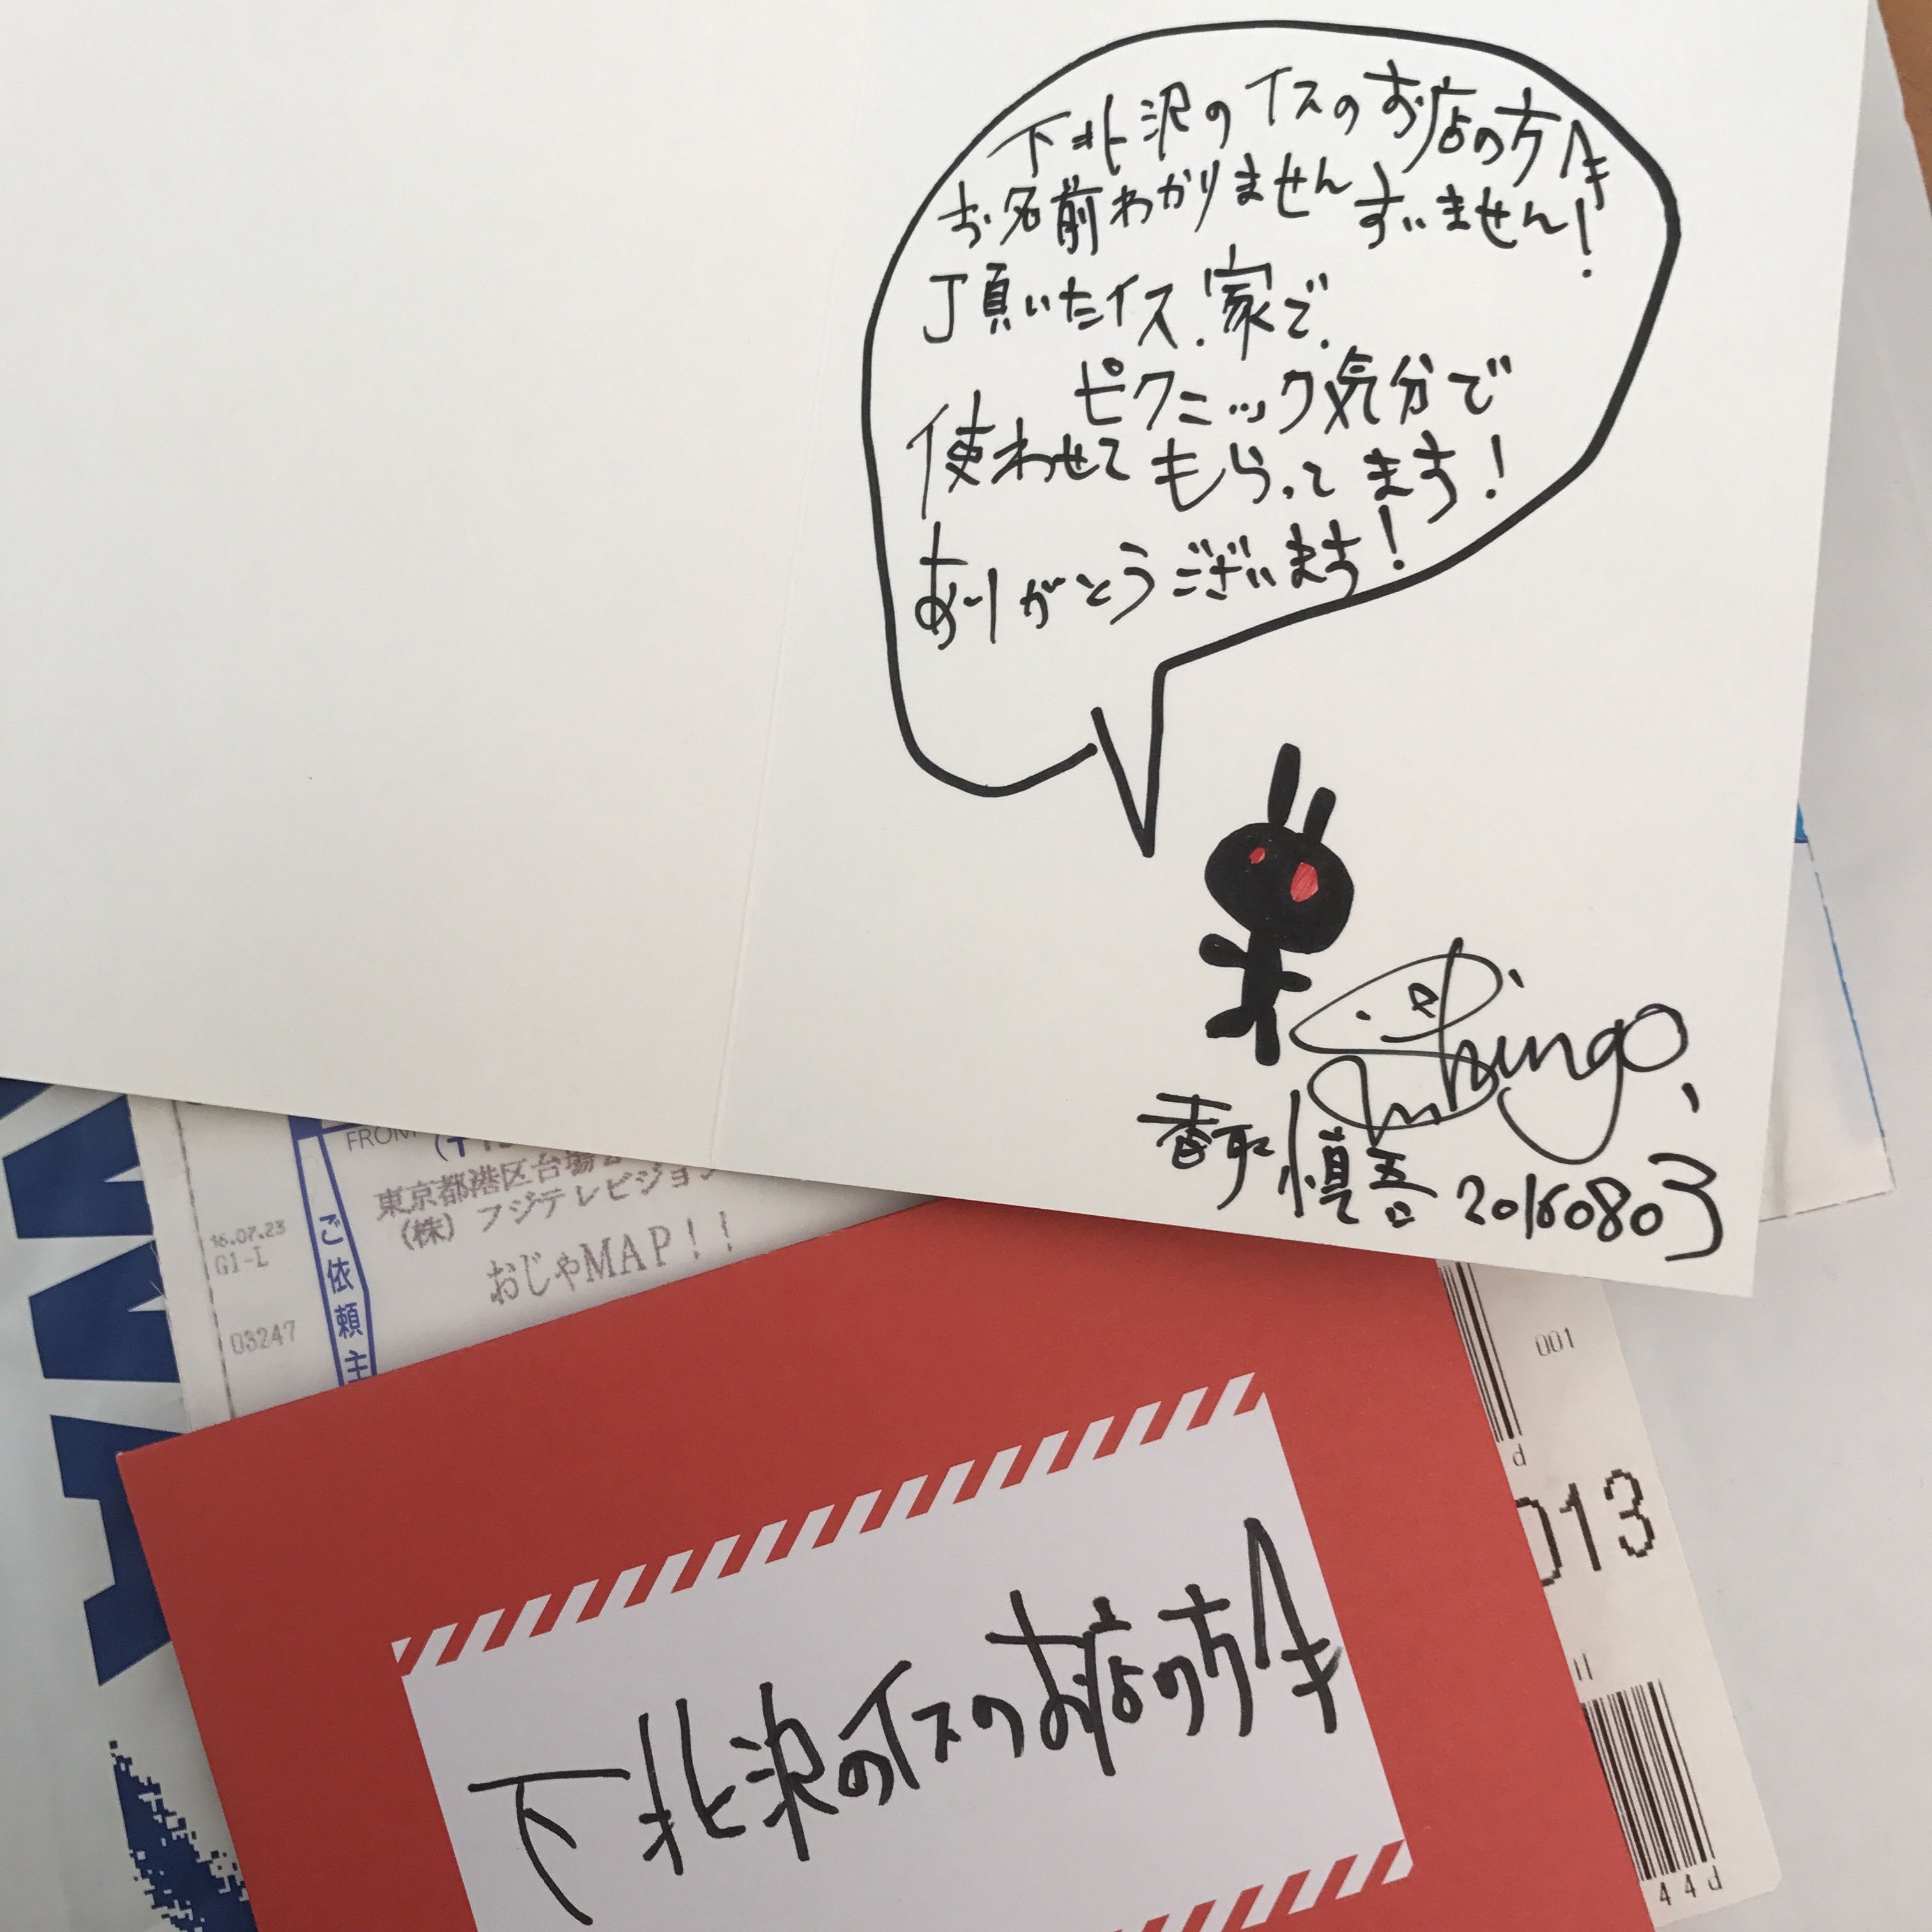 下北沢のイスのお店の方へ
お名前わかりませんすいません!
頂いたイス.家で.
ピクニック気分で
使わせてもらってます!
ありがとうございます!
Shingo
香取慎吾 20160803
FROM
東京都港区台場
(株) フジテレビジョン
おじゃMAP!!
16.07.23
G1-L
03247
ご依頼主
001
d
013
44d
下北沢のイスのお店の方